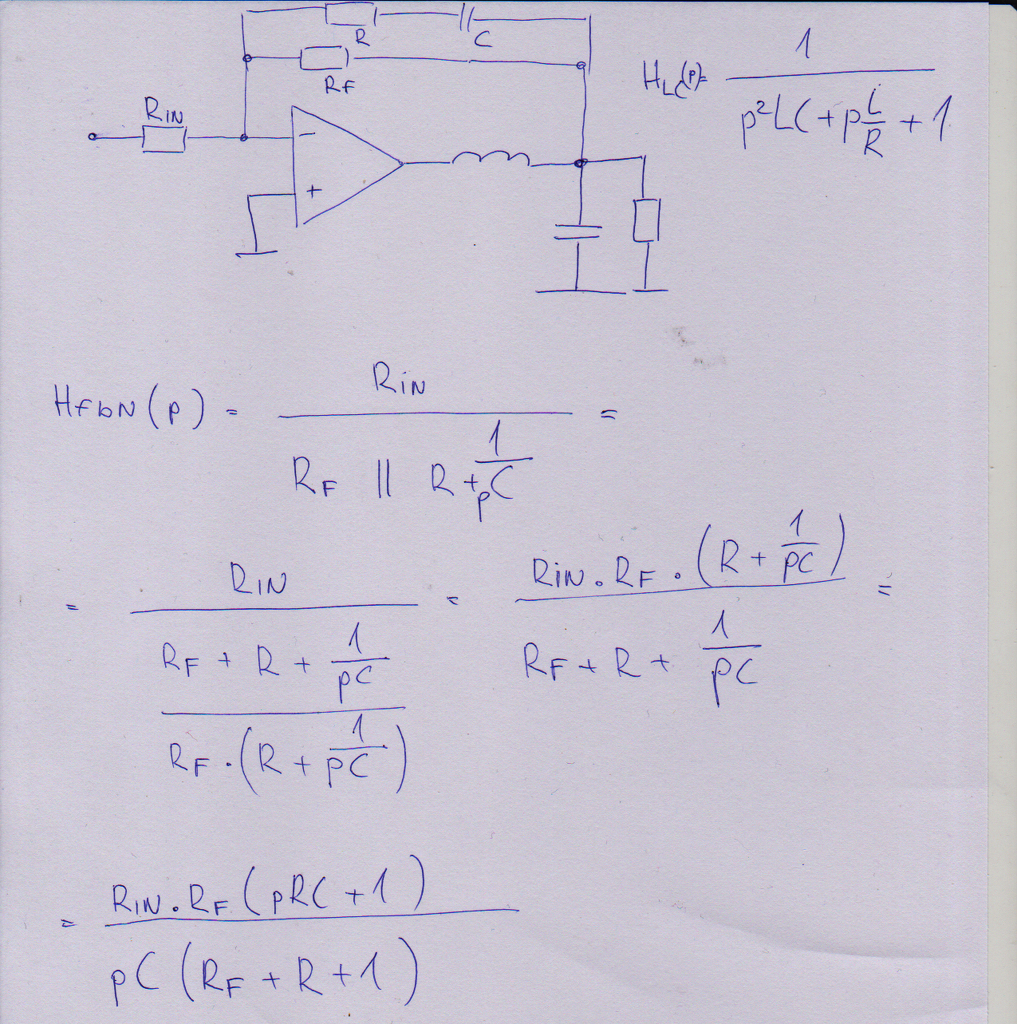 R C
R_F
R_IN
- +
H_LC(p) = 1 / (p²LC + p L/R + 1)
HfbN(p) = R_IN / (R_F || R + 1/pC) =
= R_IN / ((R_F + R + 1/pC) / (R_F · (R + 1/pC))) = R_IN · R_F · (R + 1/pC) / (R_F + R + 1/pC) =
= R_IN · R_F (pRC + 1) / (pC (R_F + R + 1))